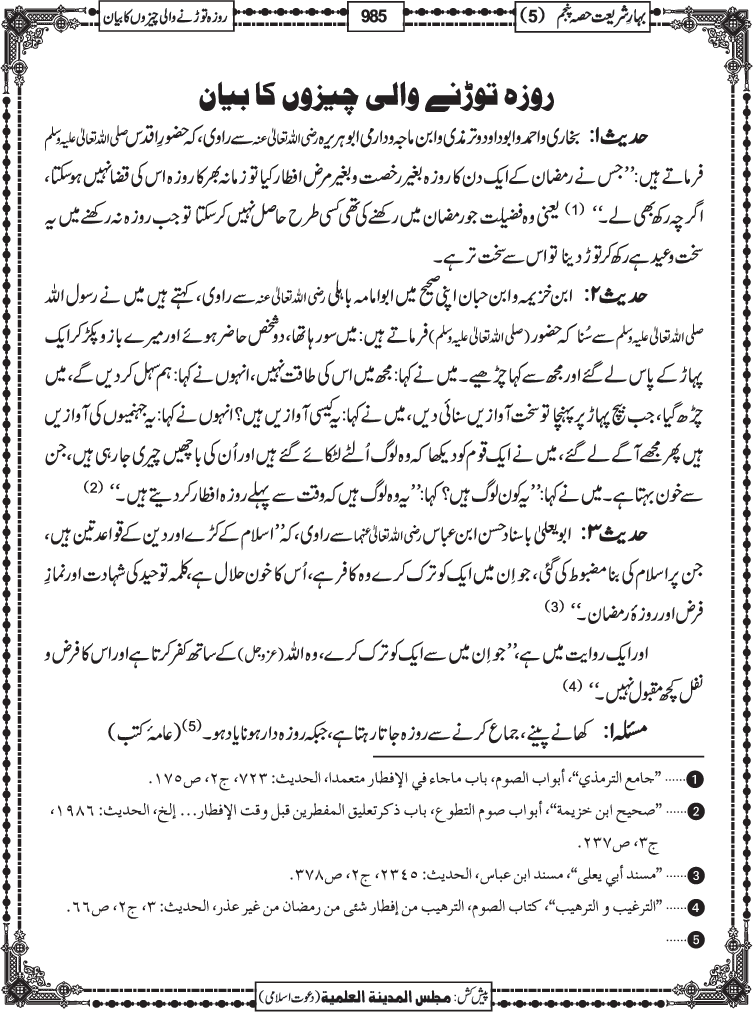 بہارِ شریعت حصہ پنجم (5)
985
روزہ توڑنے والی چیزوں کا بیان
روزہ توڑنے والی چیزوں کا بیان
حدیث ۱: بخاری و احمد و ابوداود و ترمذی و ابن ماجہ و دارمی ابوہریرہ رضی اللہ تعالیٰ عنہ سے راوی، کہ حضورِ اقدس صلی اللہ تعالیٰ علیہ وسلم
فرماتے ہیں: ’’جس نے رمضان کے ایک دن کا روزہ بغیر رخصت و بغیر مرض افطار کیا تو زمانہ بھر کا روزہ اس کی قضا نہیں ہوسکتا،
اگرچہ رکھ بھی لے۔‘‘ (1) یعنی وہ فضیلت جو رمضان میں رکھنے کی تھی کسی طرح حاصل نہیں کرسکتا تو جب روزہ نہ رکھنے میں یہ
سخت وعید ہے رکھ کر توڑ دینا تو اس سے سخت تر ہے۔
حدیث ۲: ابن خزیمہ و ابن حبان اپنی صحیح میں ابوامامہ باہلی رضی اللہ تعالیٰ عنہ سے راوی، کہتے ہیں میں نے رسول اللہ
صلی اللہ تعالیٰ علیہ وسلم سے سُنا کہ حضور (صلی اللہ تعالیٰ علیہ وسلم) فرماتے ہیں: میں سو رہا تھا، دو شخص حاضر ہوئے اور میرے بازو پکڑ کر ایک
پہاڑ کے پاس لے گئے اور مجھ سے کہا چڑھیے۔ میں نے کہا: مجھ میں اس کی طاقت نہیں، انہوں نے کہا: ہم سہل کردیں گے، میں
چڑھ گیا، جب بیچ پہاڑ پر پہنچا تو سخت آوازیں سنائی دیں، میں نے کہا: یہ کیسی آوازیں ہیں؟ انہوں نے کہا: یہ جہنمیوں کی آوازیں
ہیں پھر مجھے آگے لے گئے، میں نے ایک قوم کو دیکھا کہ وہ لوگ اُلٹے لٹکائے گئے ہیں اور اُن کی باچھیں چیری جا رہی ہیں، جن
سے خون بہتا ہے۔ میں نے کہا: ’’یہ کون لوگ ہیں؟ کہا: ’’یہ وہ لوگ ہیں کہ وقت سے پہلے روزہ افطار کردیتے ہیں۔‘‘ (2)
حدیث ۳: ابویعلیٰ باسناد حسن ابن عباس رضی اللہ تعالیٰ عنہما سے راوی، کہ ’’اسلام کے کڑے اور دین کے قواعد تین ہیں،
جن پر اسلام کی بنا مضبوط کی گئی، جو اِن میں ایک کو ترک کرے وہ کافر ہے، اُس کا خون حلال ہے، کلمہ توحید کی شہادت اور نمازِ
فرض اور روزۂ رمضان۔‘‘ (3)
اور ایک روایت میں ہے، ’’جو اِن میں سے ایک کو ترک کرے، وہ اللہ (عزوجل) کے ساتھ کفر کرتا ہے اور اس کا فرض و
نفل کچھ مقبول نہیں۔‘‘ (4)
مسئلہ ۱: کھانے پینے، جماع کرنے سے روزہ جاتا رہتا ہے، جبکہ روزہ دار ہونا یاد ہو۔ (5) (عامۂ کتب)
1 ...... ”جامع الترمذي“، أبواب الصوم، باب ماجاء في الإفطار متعمدا، الحدیث: ۷۲۳، ج۲، ص۱۷۵.
2 ...... ”صحیح ابن خزیمة“، أبواب صوم التطوع، باب ذکر تعلیق المفطرین قبل وقت الإفطار... إلخ، الحدیث: ۱۹۸۶،
ج۳، ص۲۳۷.
3 ...... ”مسند أبي یعلی“، مسند ابن عباس، الحدیث: ۲۳٤۵، ج۲، ص۳۷۸.
4 ...... ”الترغیب و الترهیب“، کتاب الصوم، الترهیب من إفطار شئی من رمضان من غیر عذر، الحدیث: ۳، ج۲، ص٦٦.
5 ......
پیش کش: مجلس المدینة العلمیة (دعوت اسلامی)